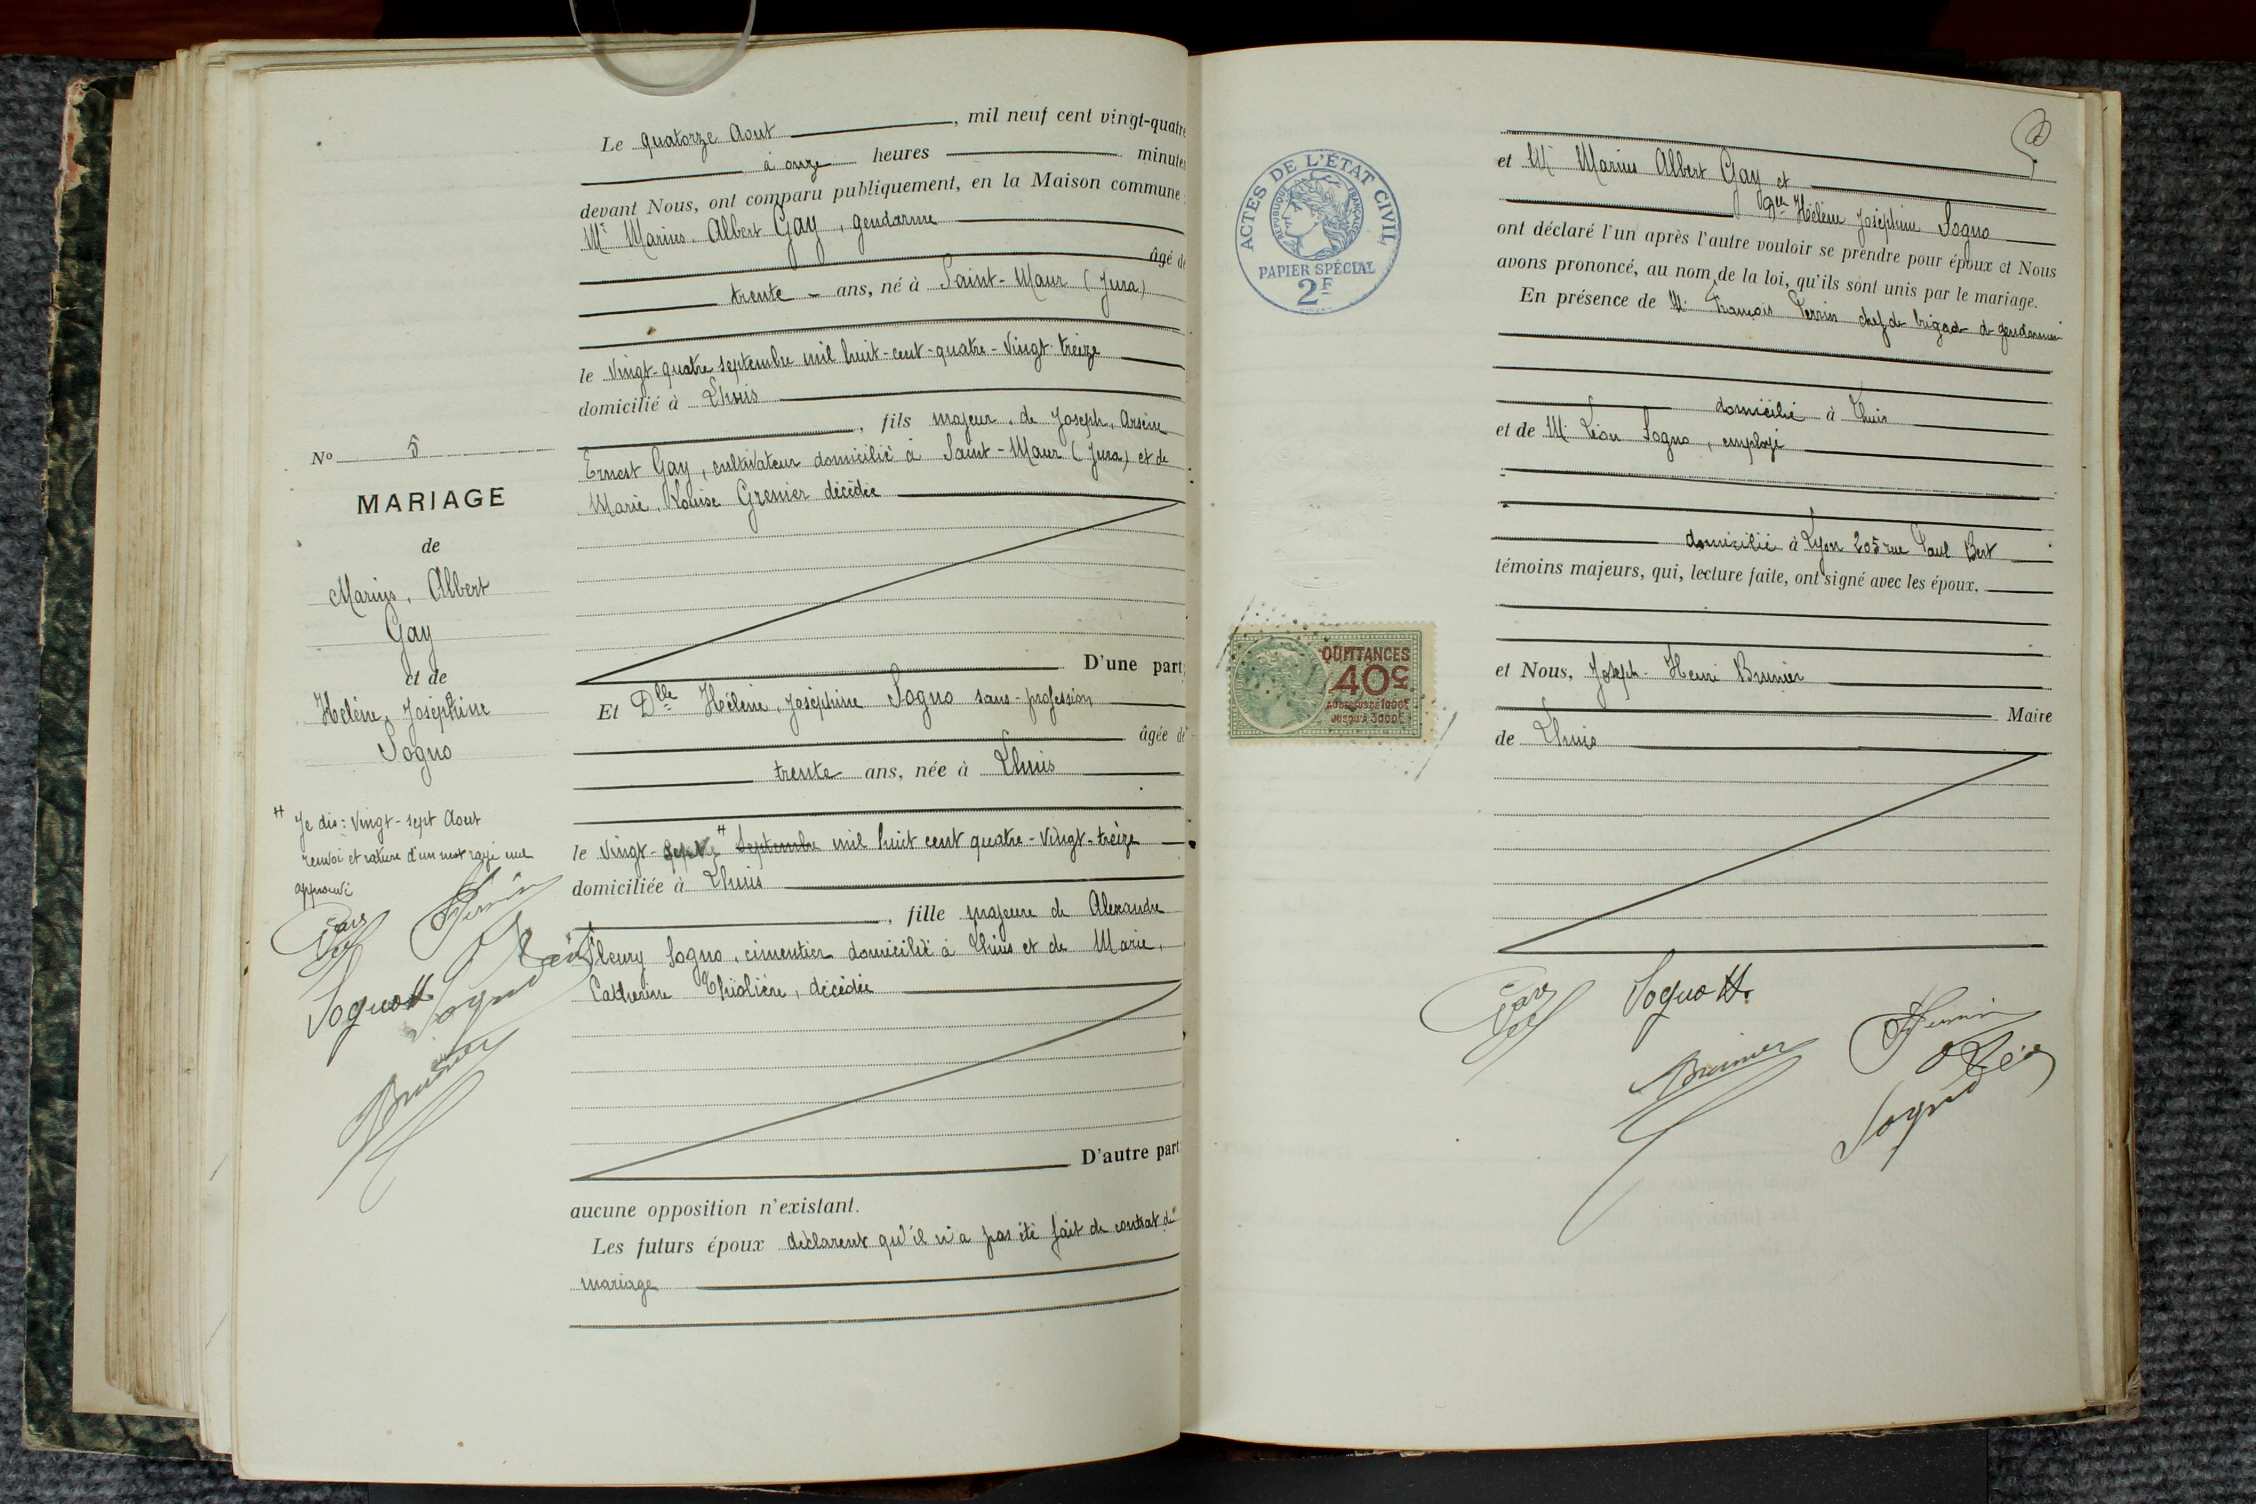 Le quatorze Aout, mil neuf cent vingt-quatre
à onze heures minutes
devant Nous, ont comparu publiquement, en la Maison commune :
Mr Marius, Albert Gay, gendarme
âgé de
trente ans, né à Saint-Maur (Jura)
le vingt-quatre septembre mil huit-cent-quatre-vingt treize
domicilié à Lhuis
, fils majeur, de Joseph, Arsène
Ernest Gay, cultivateur domicilié à Saint-Maur (Jura) et de
Marie, Louise Grenier décédée
D'une part;
Et Dlle Hélène, Joséphine Sogno sans-profession
âgée de
trente ans, née à Lhuis
le vingt- septembre mil huit cent quatre-vingt-treize
domiciliée à Lhuis
, fille majeure de Alexandre
Fleury Sogno, cimentier domicilié à Lhuis et de Marie,
Catherine Thiolière, décédée
D'autre part
aucune opposition n'existant.
Les futurs époux déclarent qu'il n'a pas été fait de contrat de
mariage
No 5
MARIAGE
de
Marius, Albert
Gay
et de
Hélène, Joséphine
Sogno
Je dis : vingt-sept Aout
renvoi et rature d'un mot rayé nul
approuvé
Gay
Perrin
Sogno H.
Sogno Léon
Brunier
ACTES DE L'ÉTAT CIVIL
RÉPUBLIQUE FRANÇAISE
PAPIER SPÉCIAL
2F
QUITTANCES
40c
AU DESSUS DE 1000F
JUSQU'À 3000F
et Mr Marius Albert Gay et
Dlle Hélène Joséphine Sogno
ont déclaré l'un après l'autre vouloir se prendre pour époux et Nous
avons prononcé, au nom de la loi, qu'ils sont unis par le mariage.
En présence de M. François Perrin chef de brigade de gendarmerie
domicilié à Lhuis
et de M. Léon Sogno, employé
domicilié à Lyon 205 rue Paul Bert
témoins majeurs, qui, lecture faite, ont signé avec les époux,
et Nous, Joseph-Henri Brunier
Maire
de Lhuis
Gay
Sogno H.
Brunier
Perrin
Léon
Sogno